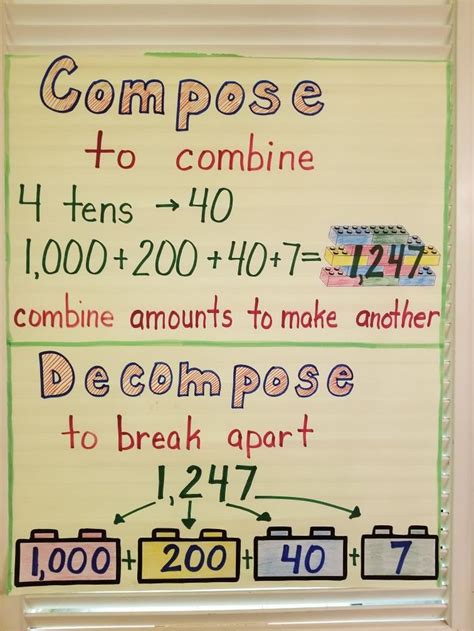 Compose
to combine
4 tens → 40
1,000+200+40+7= 1,247
combine amounts to make another
Decompose
to break apart
1,247
1,000 + 200 + 40 + 7